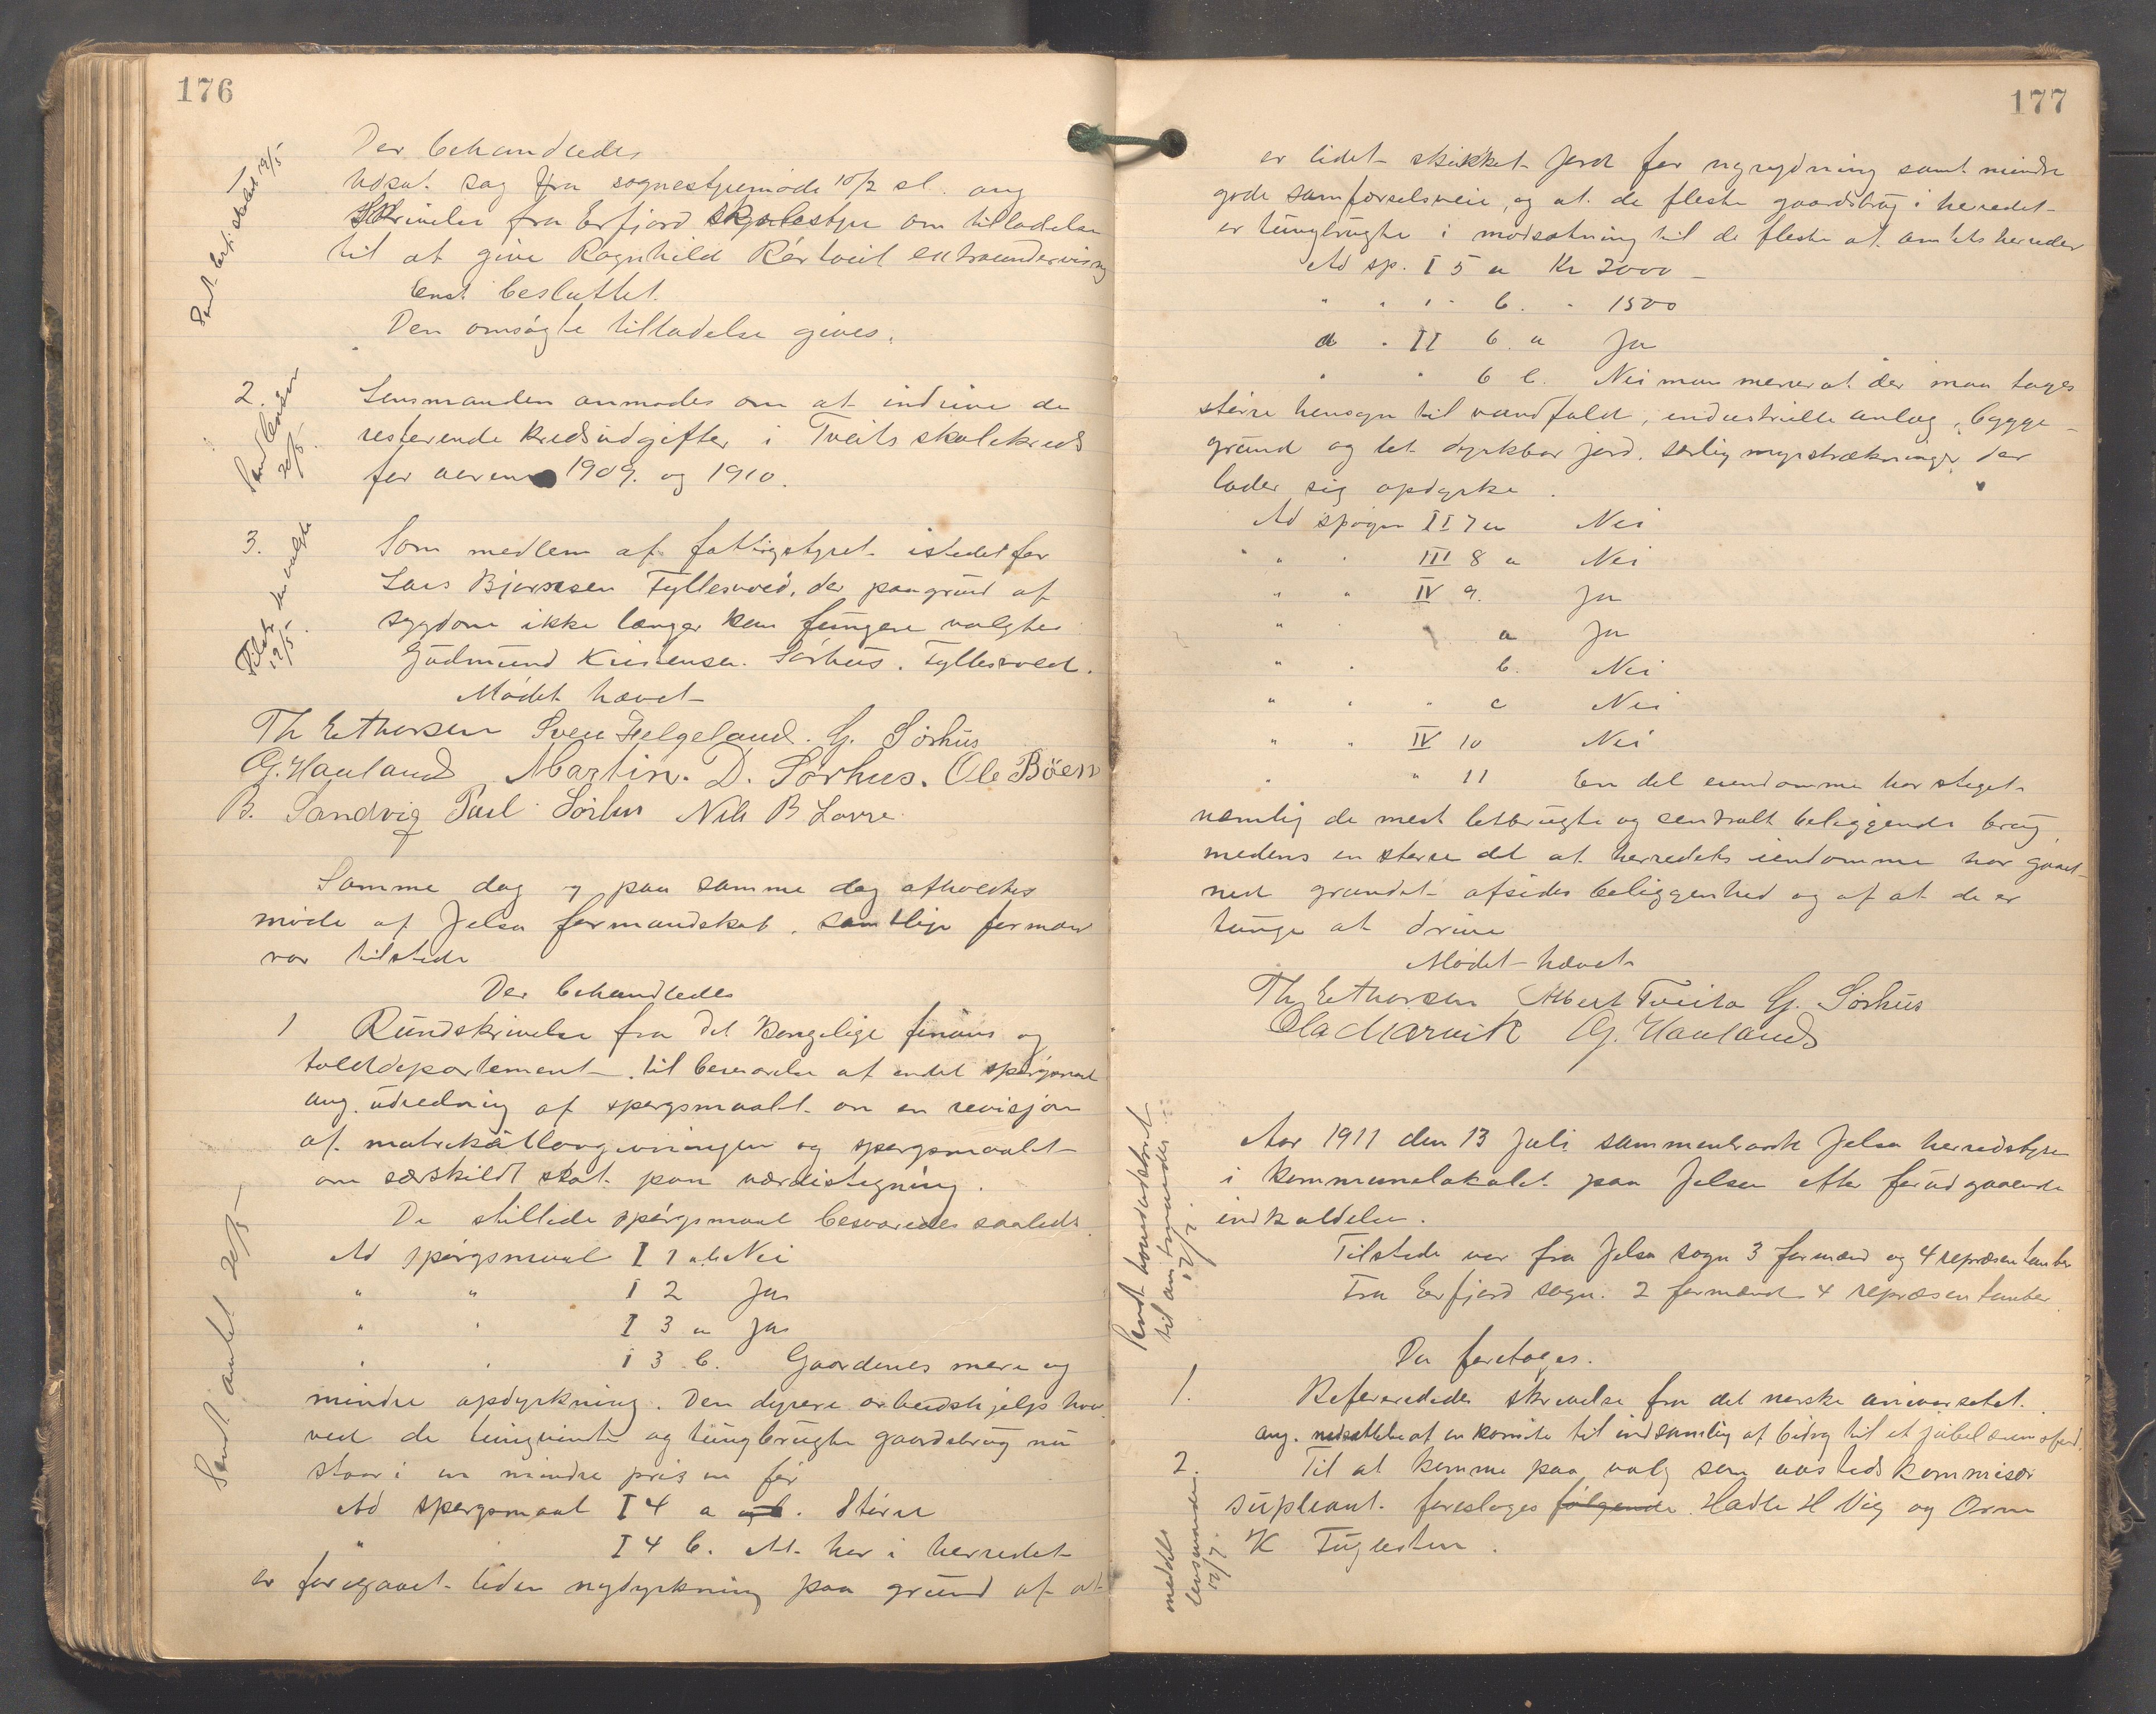 176
Der behandledes
1
Sendt Erf. skolest 19/5
Udsat sag fra sognestyremøde 10/2 sl. ang
Skrivelse fra Erfjord skolestyre om tilladelse
til at give Ragnhild Rørtveit extraundervisning
Enst besluttet.
Den omsøgte tilladelse gives.
2.
Sendt lensm 20/5.
Lensmanden anmodes om at indrive de
resterende kredsudgifter i Tveits skolekreds
for aarene 1909. og 1910.
3.
Tilst. den valgte 19/5.
Som medlem af fattigstyret istedetfor
Lars Bjørnsen Fyllesvold, der paagrund af
sygdom ikke længer kan fungere valgtes
Gudmund Kristensen Sørhus. Fyllesvold.
Mødet hævet
Th E Thorsen Sven Helgeland. G. Sörhus
G. Hauland Martin. D. Sørhus. Ole Böen
B. Sandvig Paul Sörhus Nils B Lovre
Samme dag og paa samme dag afholdtes
møde af Jelsa formandskab. samtlige formænd
var tilstede
Der behandledes
1 Rundskrivelse fra det kongelige finans og
tolddepartement til besvarelse af endel spørgsmaal
ang. udredning af spørgsmaalet om en revisjon
af matrikullovgivningen og spørgsmaalet
om særskildt skat paa værdistigning.
De stillede spørgsmaal besvaredes saaledes
Sendt amtet 20/5
Ad spørgsmaal I 1 a b Nei
" " I 2 Ja
" " I 3 a Ja
" " I 3 b. Gaardenes mere og
mindre opdyrkning. Den dyrere arbeidshjelp hvor
ved de tungvinte og tungbrugte gaardsbrug nu
staar i en mindre pris en før
Ad spørgsmaal I 4 a og b. Større
" I 4 b. At her i herredet
er foregaaet liden nydyrkning paa grund af at
177
er lidet skikket jord for nyrydning samt mindre
gode samfærselsveie, og at de fleste gaardsbrug i herredet
er tungbrugte i modsætning til de fleste af amtets herreder
Ad sp. I 5 a Kr 2000 -
" " " " b. " 1500
a " II 6. a Ja
" " 6 b. Nei man mener at der maa tages
større hensyn til vandfald, industrielle anlæg, bygge-
grund og let dyrkbar jord. særlig myrstrækninger der
lader sig opdyrke.
Ad spørgsm II 7 a Nei
" " " III 8 a Nei
" " IV 9. Ja
" " a Ja
" " b. Nei
" " " c Nei
" " IV 10 Nei
" " 11 En del eiendomme har steget
nemlig de mest letbrugte og sentralt beliggende brug
medens en større del af herredets eiendomme har gaaet
ned grundet afsides beliggenhed og af at de er
tunge at drive
Mødet hævet
Th E Thorsen Albert Tveita G. Sörhus
Ola Marvik G. Hauland
Aar 1911 den 13 Juli sammentraadte Jelsa herredstyre
i kommunelokalet paa Jelsa efter forudgaaende
indkaldelse.
Tilstede var fra Jelsa sogn 3 formænd og 4 repræsentanter
Fra Erfjord sogn. 2 formænd 4 repræsentanter
Der foretoges.
1.
Refereredes skrivelse fra det norske universitet.
ang. nedsættelse af en komite til indsamling af bidrag til et jubelæumsfond.
2.
meddelt lensmanden 17/7.
Til at komme paa valg som aastedskommisær
supleant. foresloges følgende Hadle H Vig og Orm
K Fuglestein.